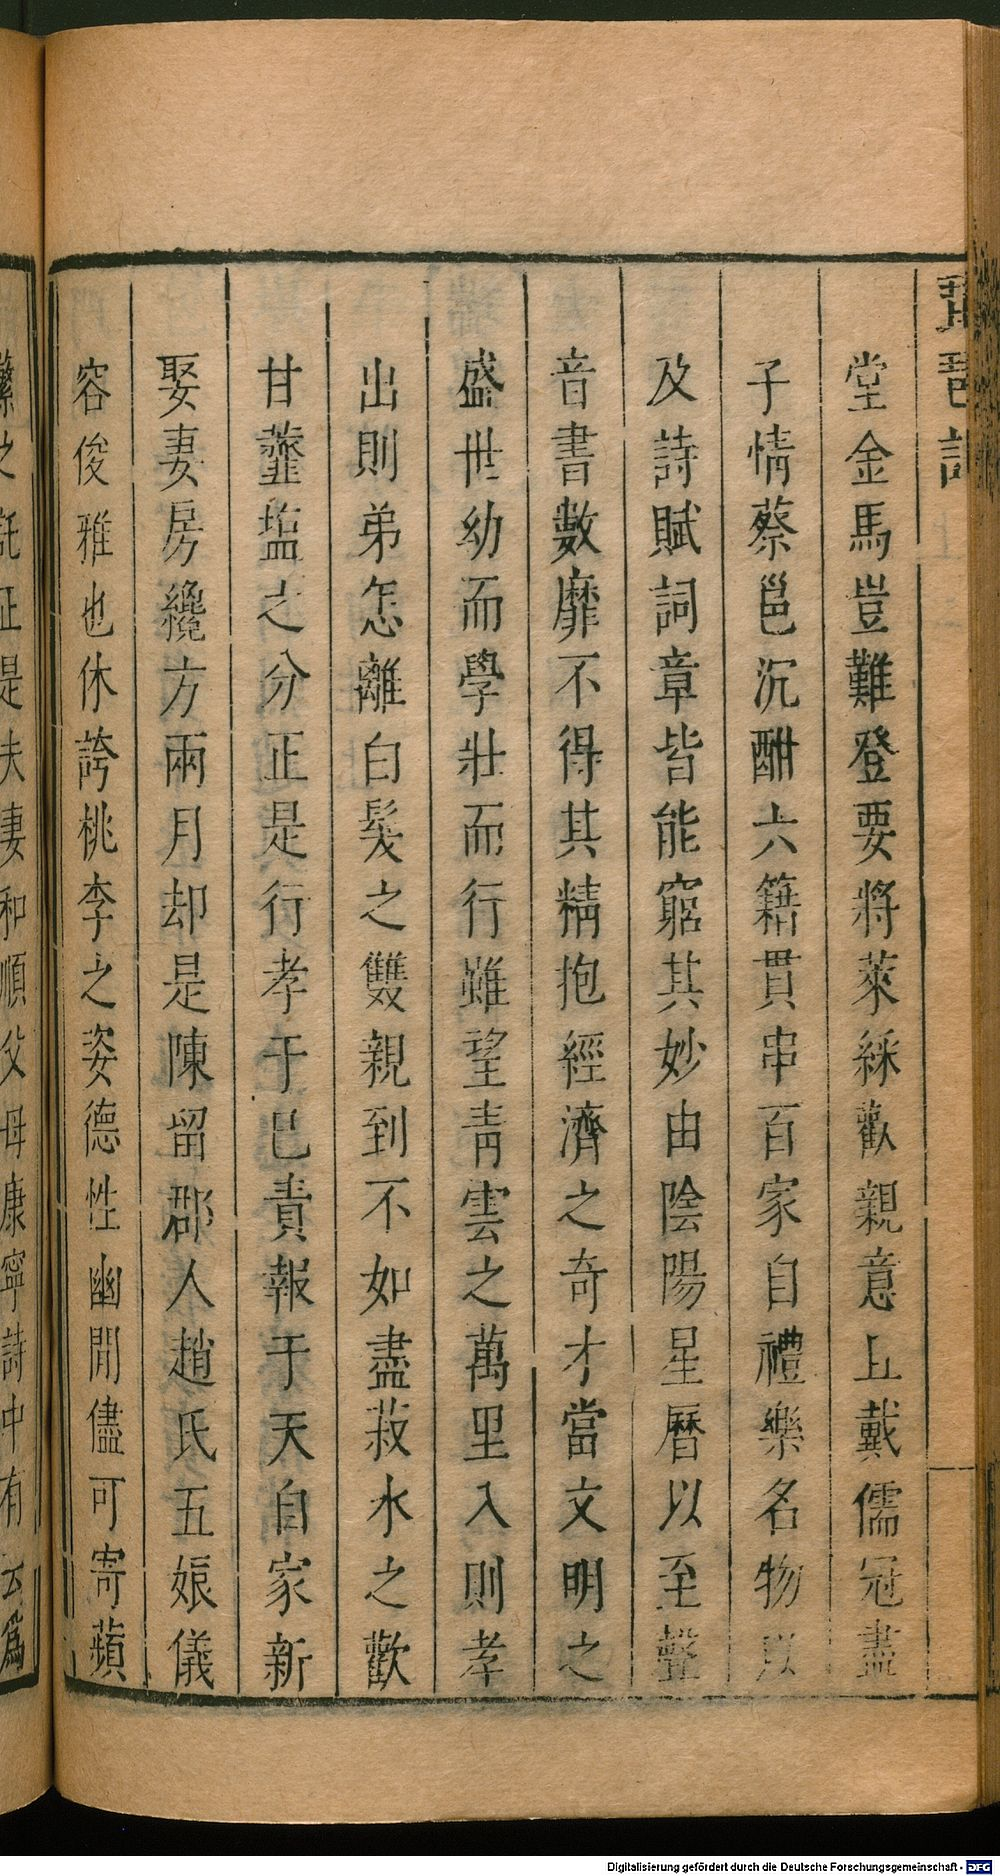 琵琶記
堂金馬豈難登要將萊綵歡親意且戴儒冠盡
子情蔡邕沉酣六籍貫串百家自禮樂名物以
及詩賦詞章皆能窮其妙由陰陽星曆以至聲
音書數靡不得其精抱經濟之奇才當文明之
盛世幼而學壯而行雖望青雲之萬里入則孝
出則弟怎離白髮之雙親到不如盡菽水之歡
甘虀塩之分正是行孝于巳責報于天自家新
娶妻房纔方兩月却是陳留郡人趙氏五娘儀
容俊雅也休誇桃李之姿德性幽閒儘可寄蘋
蘩之託正是夫妻和順父母康寧詩中有云爲
Digitalisierung gefördert durch die Deutsche Forschungsgemeinschaft - DFG